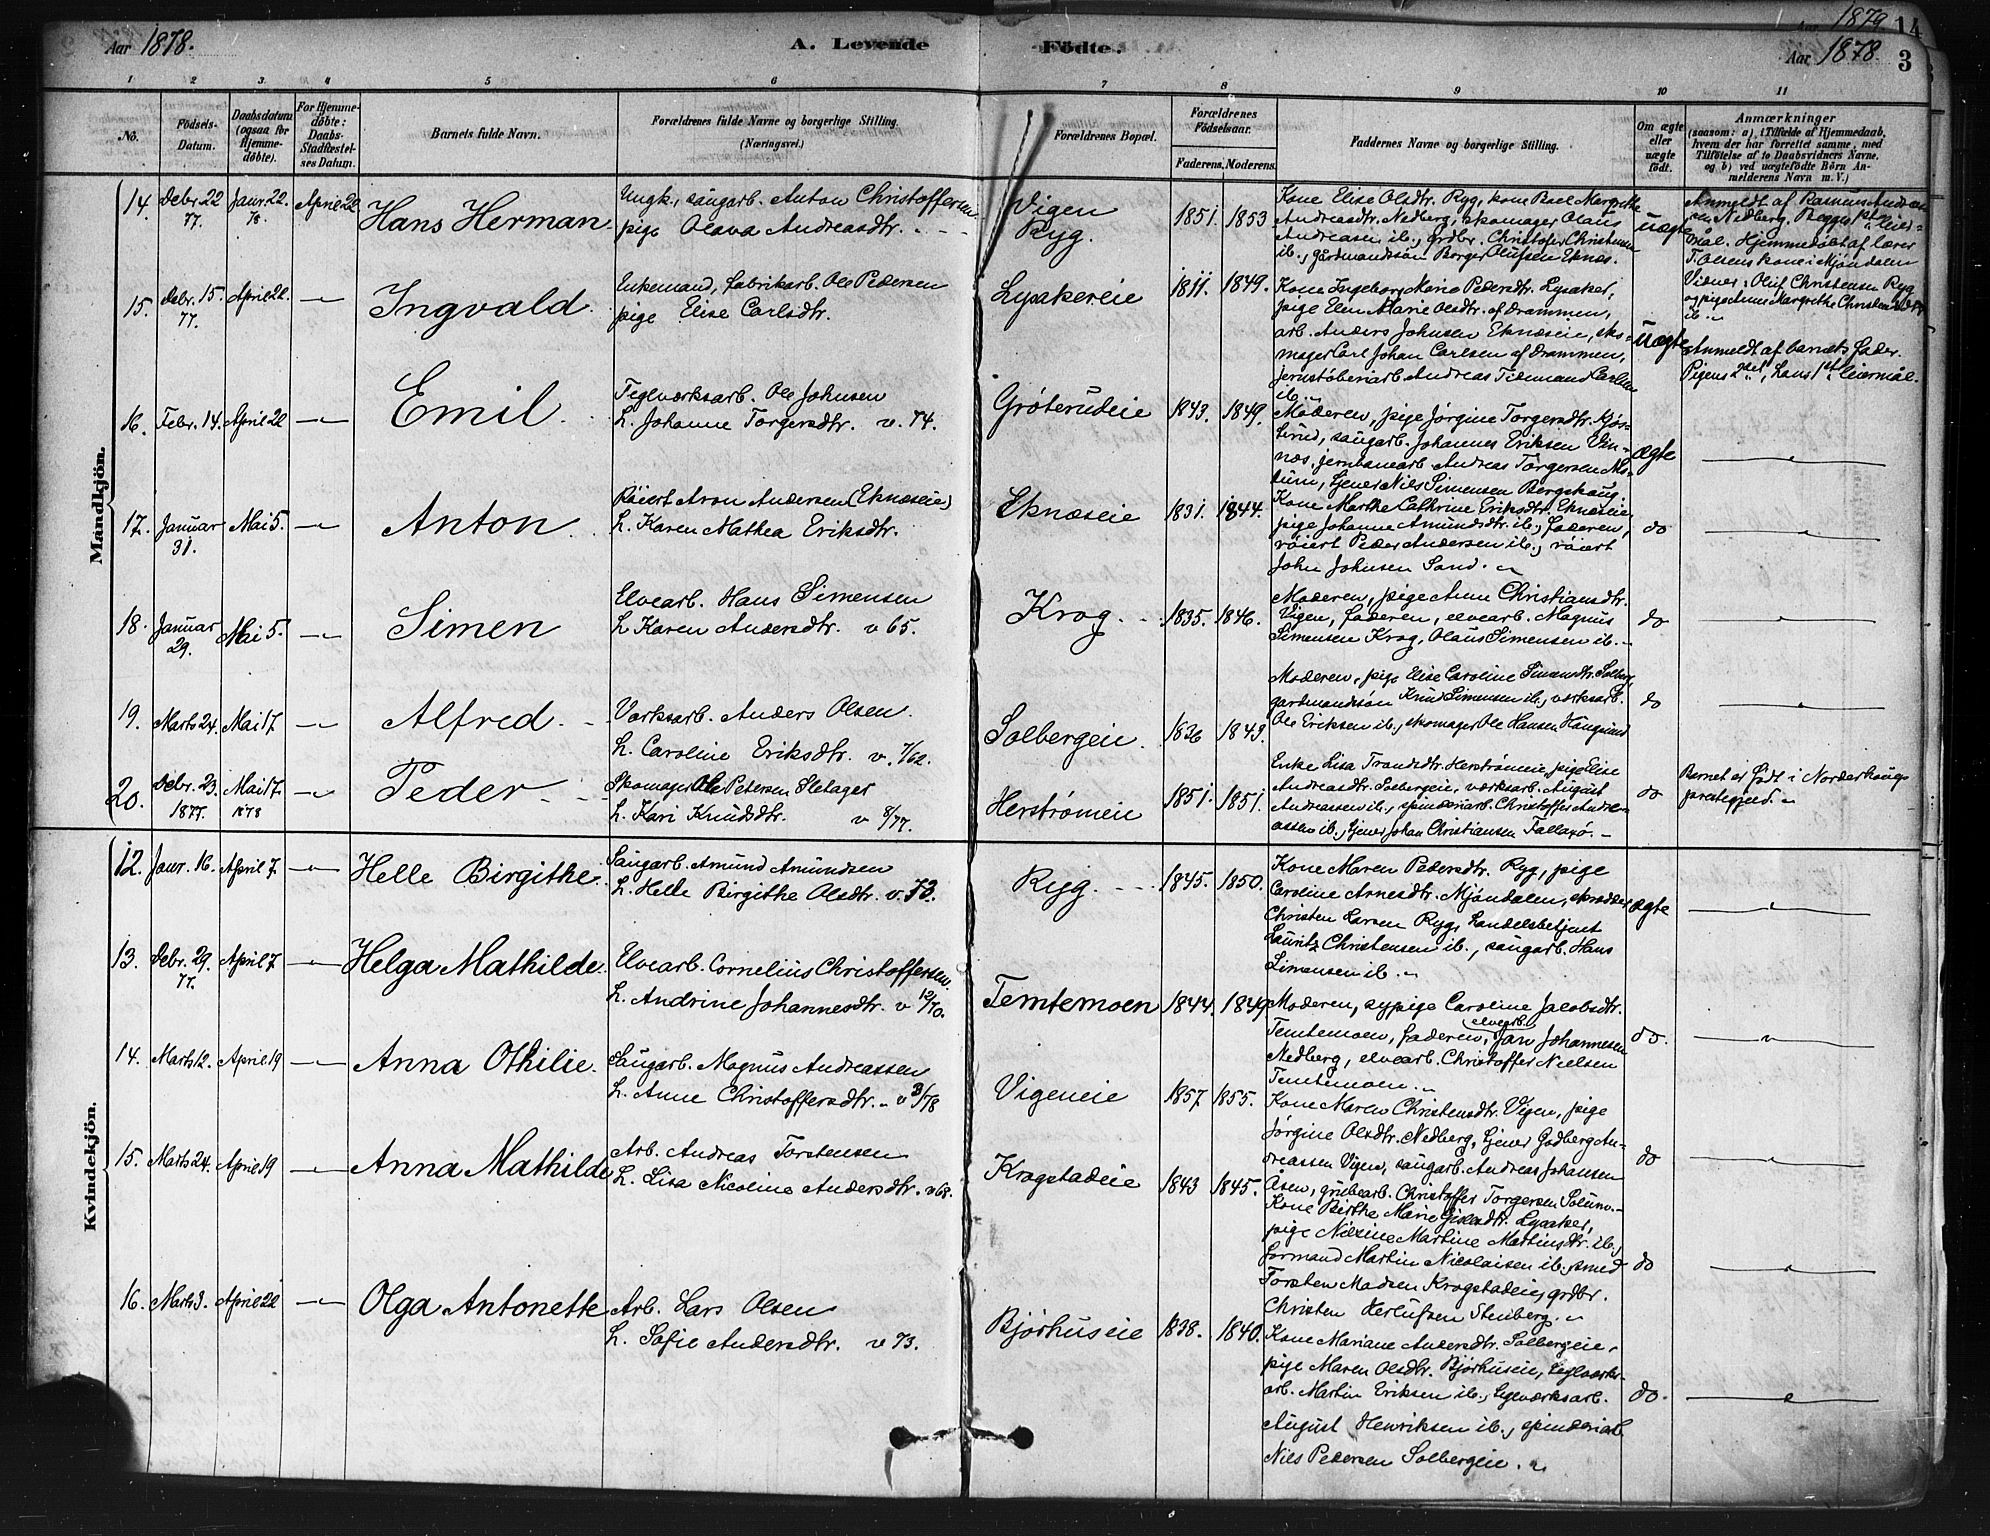 Aar 1878.
A. Levende
Födte.
1879 14
Aar 1878. 3
1 2 3. 4 5 6 7 8 9 10 11
No.
Födsels-Datum.
Daabsdatum (ogsaa for Hjemme-döbte).
For Hjemme-döbte: Daabs-Stadfæstel-ses Datum.
Barnets fulde Navn.
Forældrenes fulde Navne og borgerlige Stilling. (Næringsvei.)
Forældrenes Bopæl.
Forældrenes Födselsaar.
Faderens. Moderens.
Faddernes Navne og borgerlige Stilling.
Om ægte eller uægte födt.
Anmærkninger
(saasom: a) i Tilfælde af Hjemmedaab,
hvem der har forrettet samme, med
Tilföielse af to Daabsvidners Navne,
og b) ved uægtefödte Börn An-
melderens Navn m. V.)
Mandkjön.
14. Debr. 22 77. Janr. 22. 78 April 22 Hans Herman.
Ungk., saugarb. Anton Christoffersen
pige Olava Andreasdtr.
Vigen
Ryg.
1851. 1853.
Kone Elise Olsdtr. Ryg, kone Boel Margrethe
Andreasdtr. Nedberg, skomager Olaus
Andreasen ib., grdbr. Christofer Christensen
ib., gårdmandssön Borger Olufsen Eknæs.
uægte
Anmeldt af Rasmus Andrea-
sen Nedberg. Begges 1ste leier-
mål. Hjemmedöbt af lærer
T. Olsens kone i Mjöndalen
Vidner: Oluf Christensen Ryg
og pige Anne Margrethe Christensdtr
ib.
15. Debr. 15. 77. April 22. Ingvald.
Enkemand, fabrikarb. Ole Pedersen
pige Elise Carlsdtr.
Lysakereie 1811. 1849.
Kone Ingeborg Marie Pedersdtr. Lysaker,
pige Elen Marie Olsdtr. af Drammen,
arb. Anders Johnsen Eknæseie, sko-
mager Carl Johan Carlsen af Drammen,
jernstöberiarb. Andreas Tidemand Carlsen
ib.
uægte
Anmeldt af barnets fader.
Pigens 2det, hans 1ste leiermål.
16. Febr. 14. April 22 Emil.
Teglværksarb. Ole Johnsen
h. Johanne Torgersdtr. v. 74.
Gröterudeie 1843. 1849.
Moderen, pige Jörgine Torgersdtr. Gjös-
lerud, saugarb. Johannes Eriksen Ek-
næs, jernbanearb. Andreas Torgersen
tjener Nils Simensen Bergskaug.
ægte
17. Januar 31. Mai 5. Anton
Röiert Aron Andersen (Eknæseie)
h. Karen Mathea Eriksdtr.
Eknæseie 1831. 1844.
Kone Marthe Cathrine Eriksdtr. Eknæseie,
pige Johanne Amundsdtr. ib., faderen,
röiert Peder Andersen ib., röiert
John Johnsen Sand.
do
18. Januar 29. Mai 5. Simen
Elvearb. Hans Simensen
h. Karen Andersdtr. v 65.
Krog. 1835. 1846.
Moderen, pige Anne Christiansdtr.
Vigen, faderen, elvearb. Magnus
Simensen Krog, Olaus Simensen ib.
do
19. Marts 24. Mai 17 Alfred.
Værksarb. Anders Olsen.
h. Caroline Eriksdtr. v. 7/62.
Solbergeie. 1836 1843.
Moderen, pige Elise Caroline Simensdtr. Solberg,
gardmandsön Knud Simensen ib., værksarb.
Ole Eriksen ib., skomager Ole Hansen
do
20. Debr. 23. 1877. Mai 17. 1878 Peder
Skomager Ole Petersen Sletager
h. Kari Knudsdtr. v 8/77.
Herströmeie 1851. 1851.
Enke Lisa Trondsdtr. Herströmeie, pige Elise
Andreasdtr. Solbergeie, værksarb. August
Andreassen ib., spinderiarb. Christoffer Andre-
assen ib., tjener Johan Christiansen
do
Barnet er födt i Norderhougs
prestegjeld.
Kvindekjön.
12. Janr. 16. April 7. Helle Birgithe.
Saugarb. Amund Amundsen
h. Helle Birgithe Olsdtr. v. 73.
Ryg. 1845. 1850.
Kone Maren Pedersdtr. Ryg, pige
Caroline Arnesdtr. Mjöndalen, skrædder
Christen Larsen Ryg, handelsbetjent
Lauritz Christensen ib., saugarb. Hans
Simensen ib.
ægte
13. Debr. 29. 77. April 7. Helga Mathilde.
Elvearb. Cornelius Christoffersen.
h. Andrine Johannesdtr. v 12/70.
Temtemoen 1844. 1849
Moderen, sypige Caroline Jacobsdtr.
Temtemoen, faderen, elvearb. Jan Johannesen
Nedberg, elvearb. Christoffer Nielsen
Temtemoen.
do.
14. Marts 12. April 19 Anna Othilie.
Saugarb. Magnus Andreassen
h. Anne Christoffersdtr. v 3/78
Vigeneie 1857. 1855.
Kone Maren Christensdtr. Vigen, pige
Jörgine Olsdtr. Nedberg, tjener Godberg An-
dreassen Vigen, saugarb. Andreas Johansen
Åsen, grubearb. Christoffer Torgersen
do
15. Marts 24. April 19 Anna Mathilde
Arb. Andreas Torstensen
h. Lisa Nicoline Andersdtr. v 68.
Krogstadeie 1843 1845.
Kone Birthe Marie Lysaker,
pige Nilsine Martine Martinsdtr. ib.,
formand Martin Nicolaisen ib., smed
Torsten Madsen Krogstadeie, grdbr.
Christen Herlufsen Stenberg.
do
16. Marts 3. April 22 Olga Antonette
Arb. Lars Olsen
h. Sofie Andersdtr. v 73.
Bjørhuseie 1838. 1840.
Kone Mariane Andersdtr. Solbergeie,
pige Maren Olsdtr. Bjørhuseie, teglværks-
arb. Martin Eriksen ib., teglværksarb.
August Henriksen ib., spinderiarb.
Nils Pedersen Solbergeie.
do.